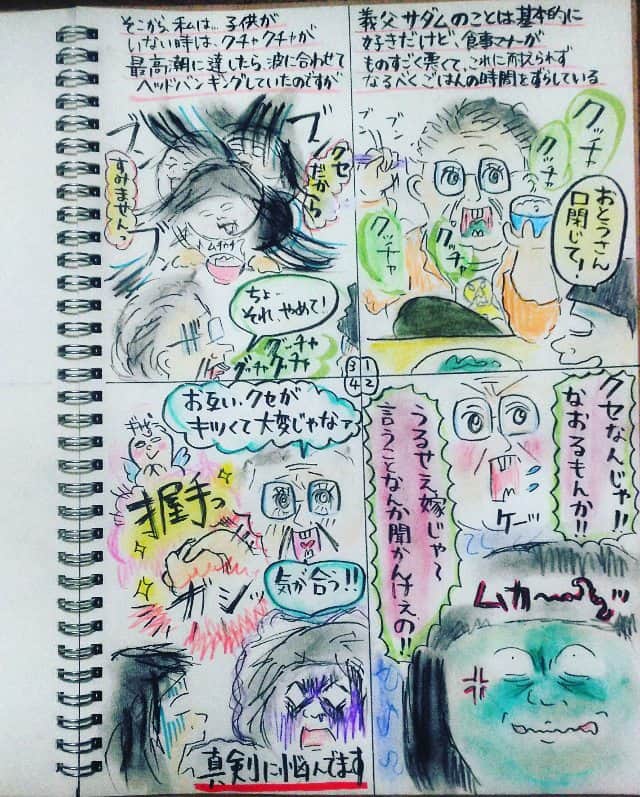 義父サダムのことは基本的に
好きだけど、食事マナーが
ものすごく悪くて、これに耐えられず
なるべくごはんの時間をずらしている
ブン
ブン
クッチャ
クッチャ
クッチャ
クッチャ
おとうさん
口閉じて!
1
2
3
4
クセなんじゃ!!
なおるもんか!!
ケーッ
うるせえ嫁じゃ~
言うことなんか聞かんけぇの!!
ムカーッ
そこから、私は…子供が
いない時は、クチャクチャが
最高潮に達したら、波に合わせて
ヘッドバンキングしていたのですが
ブン
ブン
クセ
だから
すみませんっ
ちょ…
それ、やめて!
グッチャ
グチャグチャ
お互い、クセが
キツくて大変じゃな?
握手っ
ガシッ
気が合う!!
真剣に悩んでます